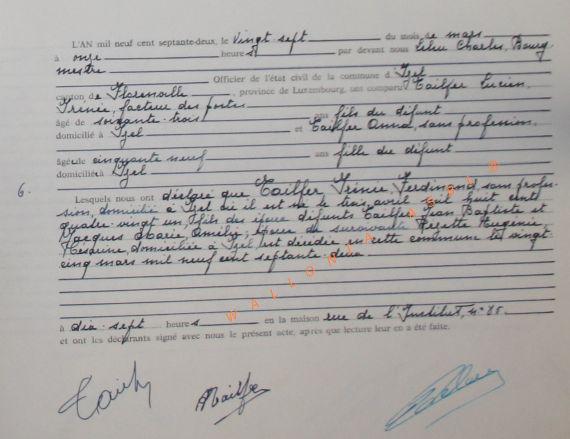 L'AN mil neuf cent septante-deux, le vingt-sept du mois de mars
à onze heures par devant nous Charles, Bourg-
mestre Officier de l'état civil de la commune d'Izel
canton de Florenville, province de Luxembourg, ont comparu Tailfer Lucien,
Irénée, facteur des postes
âgé de soixante-trois ans fils du défunt
domicilié à Izel et Tailfer Anna, sans profession,
âgée de cinquante neuf ans fille du défunt
domiciliée à Izel
6.
Lesquels nous ont déclaré que Tailfer Irénée, Ferdinand, sans profes-
sion, domicilié à Izel où il est né le trois avril mil huit cent
quatre-vingt un, fils des époux défunts Tailfer Jean Baptiste et
Jacques Marie ; époux de survivante Rosette Eugénie,
domiciliée à Izel, est décédé en cette commune le vingt-
cinq mars mil neuf cent septante-deux
à dix-sept heures en la maison rue de l'Institut, n°
et ont les déclarants signé avec nous le présent acte, après que lecture leur en a été faite.
WALLONIA ASBL